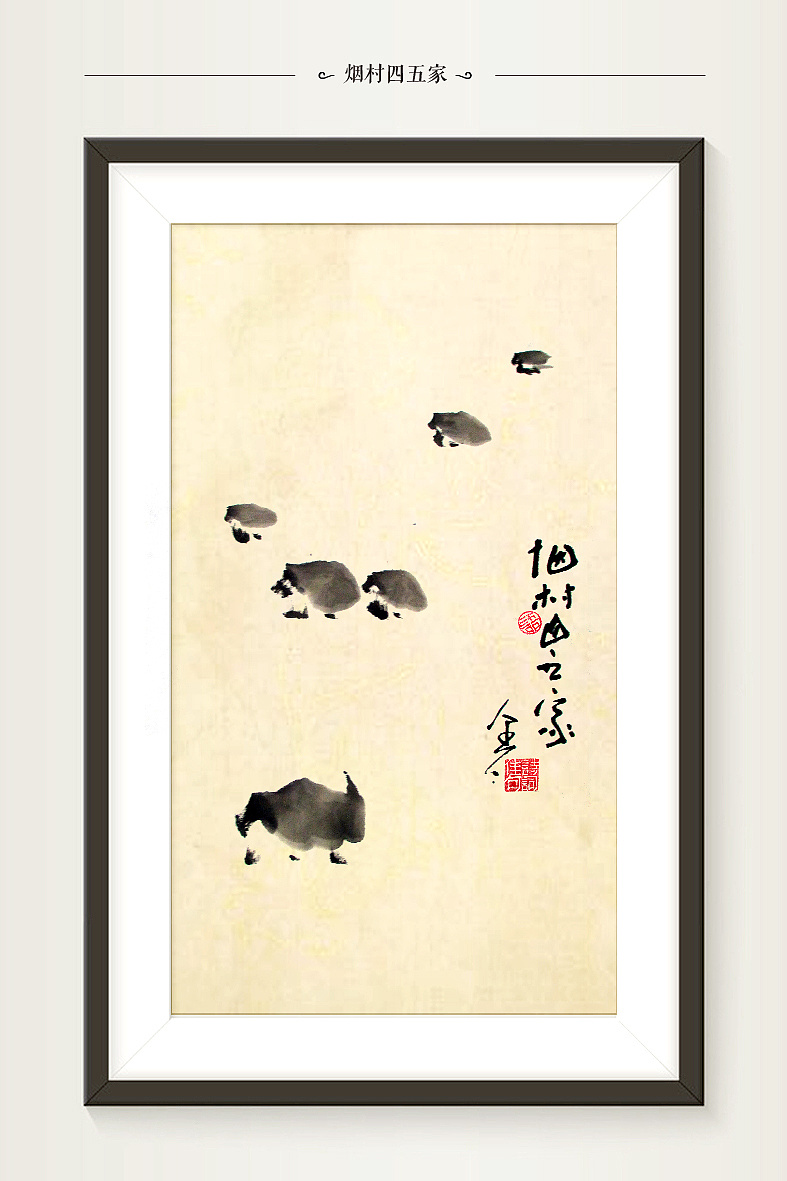 烟村四五家
烟村四五家